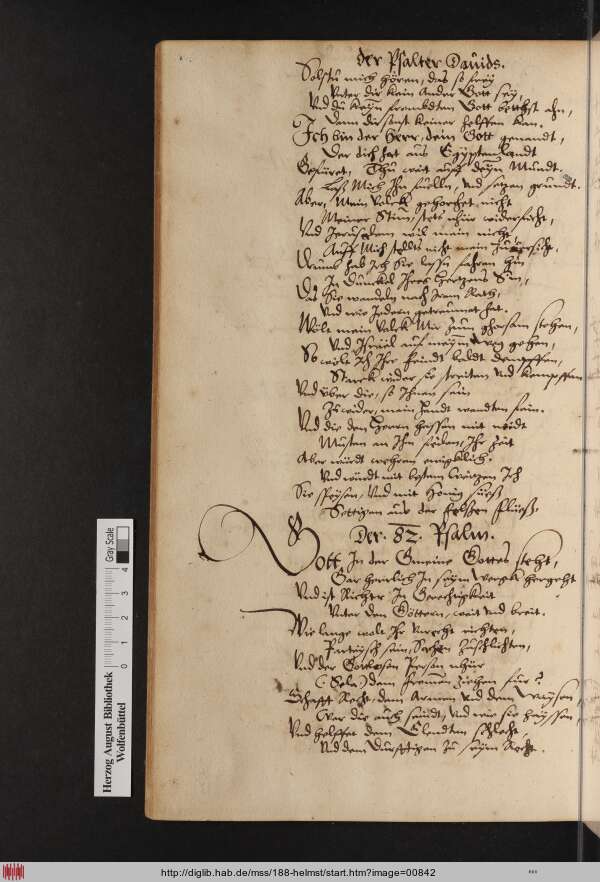 der Psalter Dauids.
Solstu mich hören, das so frey
Vnter dir kain Ander Gott sey,
Vnd du keyn frembdten Gott bettest ahn,
Dann dir sonst keiner helffen kan.
Ich bin der Herr, dein Gott genandt,
Der dich hat aus Egyptenlandt
Gefüret, Thu weit auff deyn Mundt.
Laß Mich Ihn fuelln, vnd setzen grundt.
Aber, Mein Volck gehorchet nicht
Meiner Stim, stets nhur widersicht,
Vnd Jerusalem wil mein nicht,
Auff Mich stellts nicht mein Zuuersicht.
Drumb hab Ich Sie lassn fahren hin
In Dunckel Ihres Hertzens Sin,
Das Sie wandeln nach Irem Rath,
Vnd wie Iedern getraumet hat.
Wolt mein Volck Mir zum ghorsam stehen,
Vnd Israel auf meynn weg gehen,
So wolt Ich Ihr feindt baldt dempffen,
Starck wider sie streiten vnd kempffen
Vnd über die, so Ihnen sein
Zu wider, mein Handt wendten fein.
Vnd die den Herrn hassen mit neidt
Müsten an Ihm feilen, Ihr Zeit
Aber würdt wehren ewigklich.
Vnd würdt mit bestem weitzen Ich
Sie speysen, Vnd mit Honig sueß
Settigen aus der felsen fluess.
Der. 82. Psalm.
Gott In der Gmeine Gottes steht,
Gar herrlich In seym werck hergeht
Vnd ist Richter In Gerechtigkeit
Vnter den Göttern, weit vnd breit.
Wie lange wolt Ihr vnrecht richten,
Parteysch sein, Sachen zuschlichten,
Vnd der Gottlosen Person nhür
(: Sela:) dem fremen ziehen für?
Schafft Recht, dem Armen vnd dem weysen,
Wer die auch seindt, vnd wie sie heyssen,
Vnd helffet dem Elendten schlecht,
Vnd dem Durfftigen zu seym Recht.
Herzog August Bibliothek
Wolfenbüttel
Gray Scale
0 1 2 3 4
http://diglib.hab.de/mss/188-helmst/start.htm?image=00842